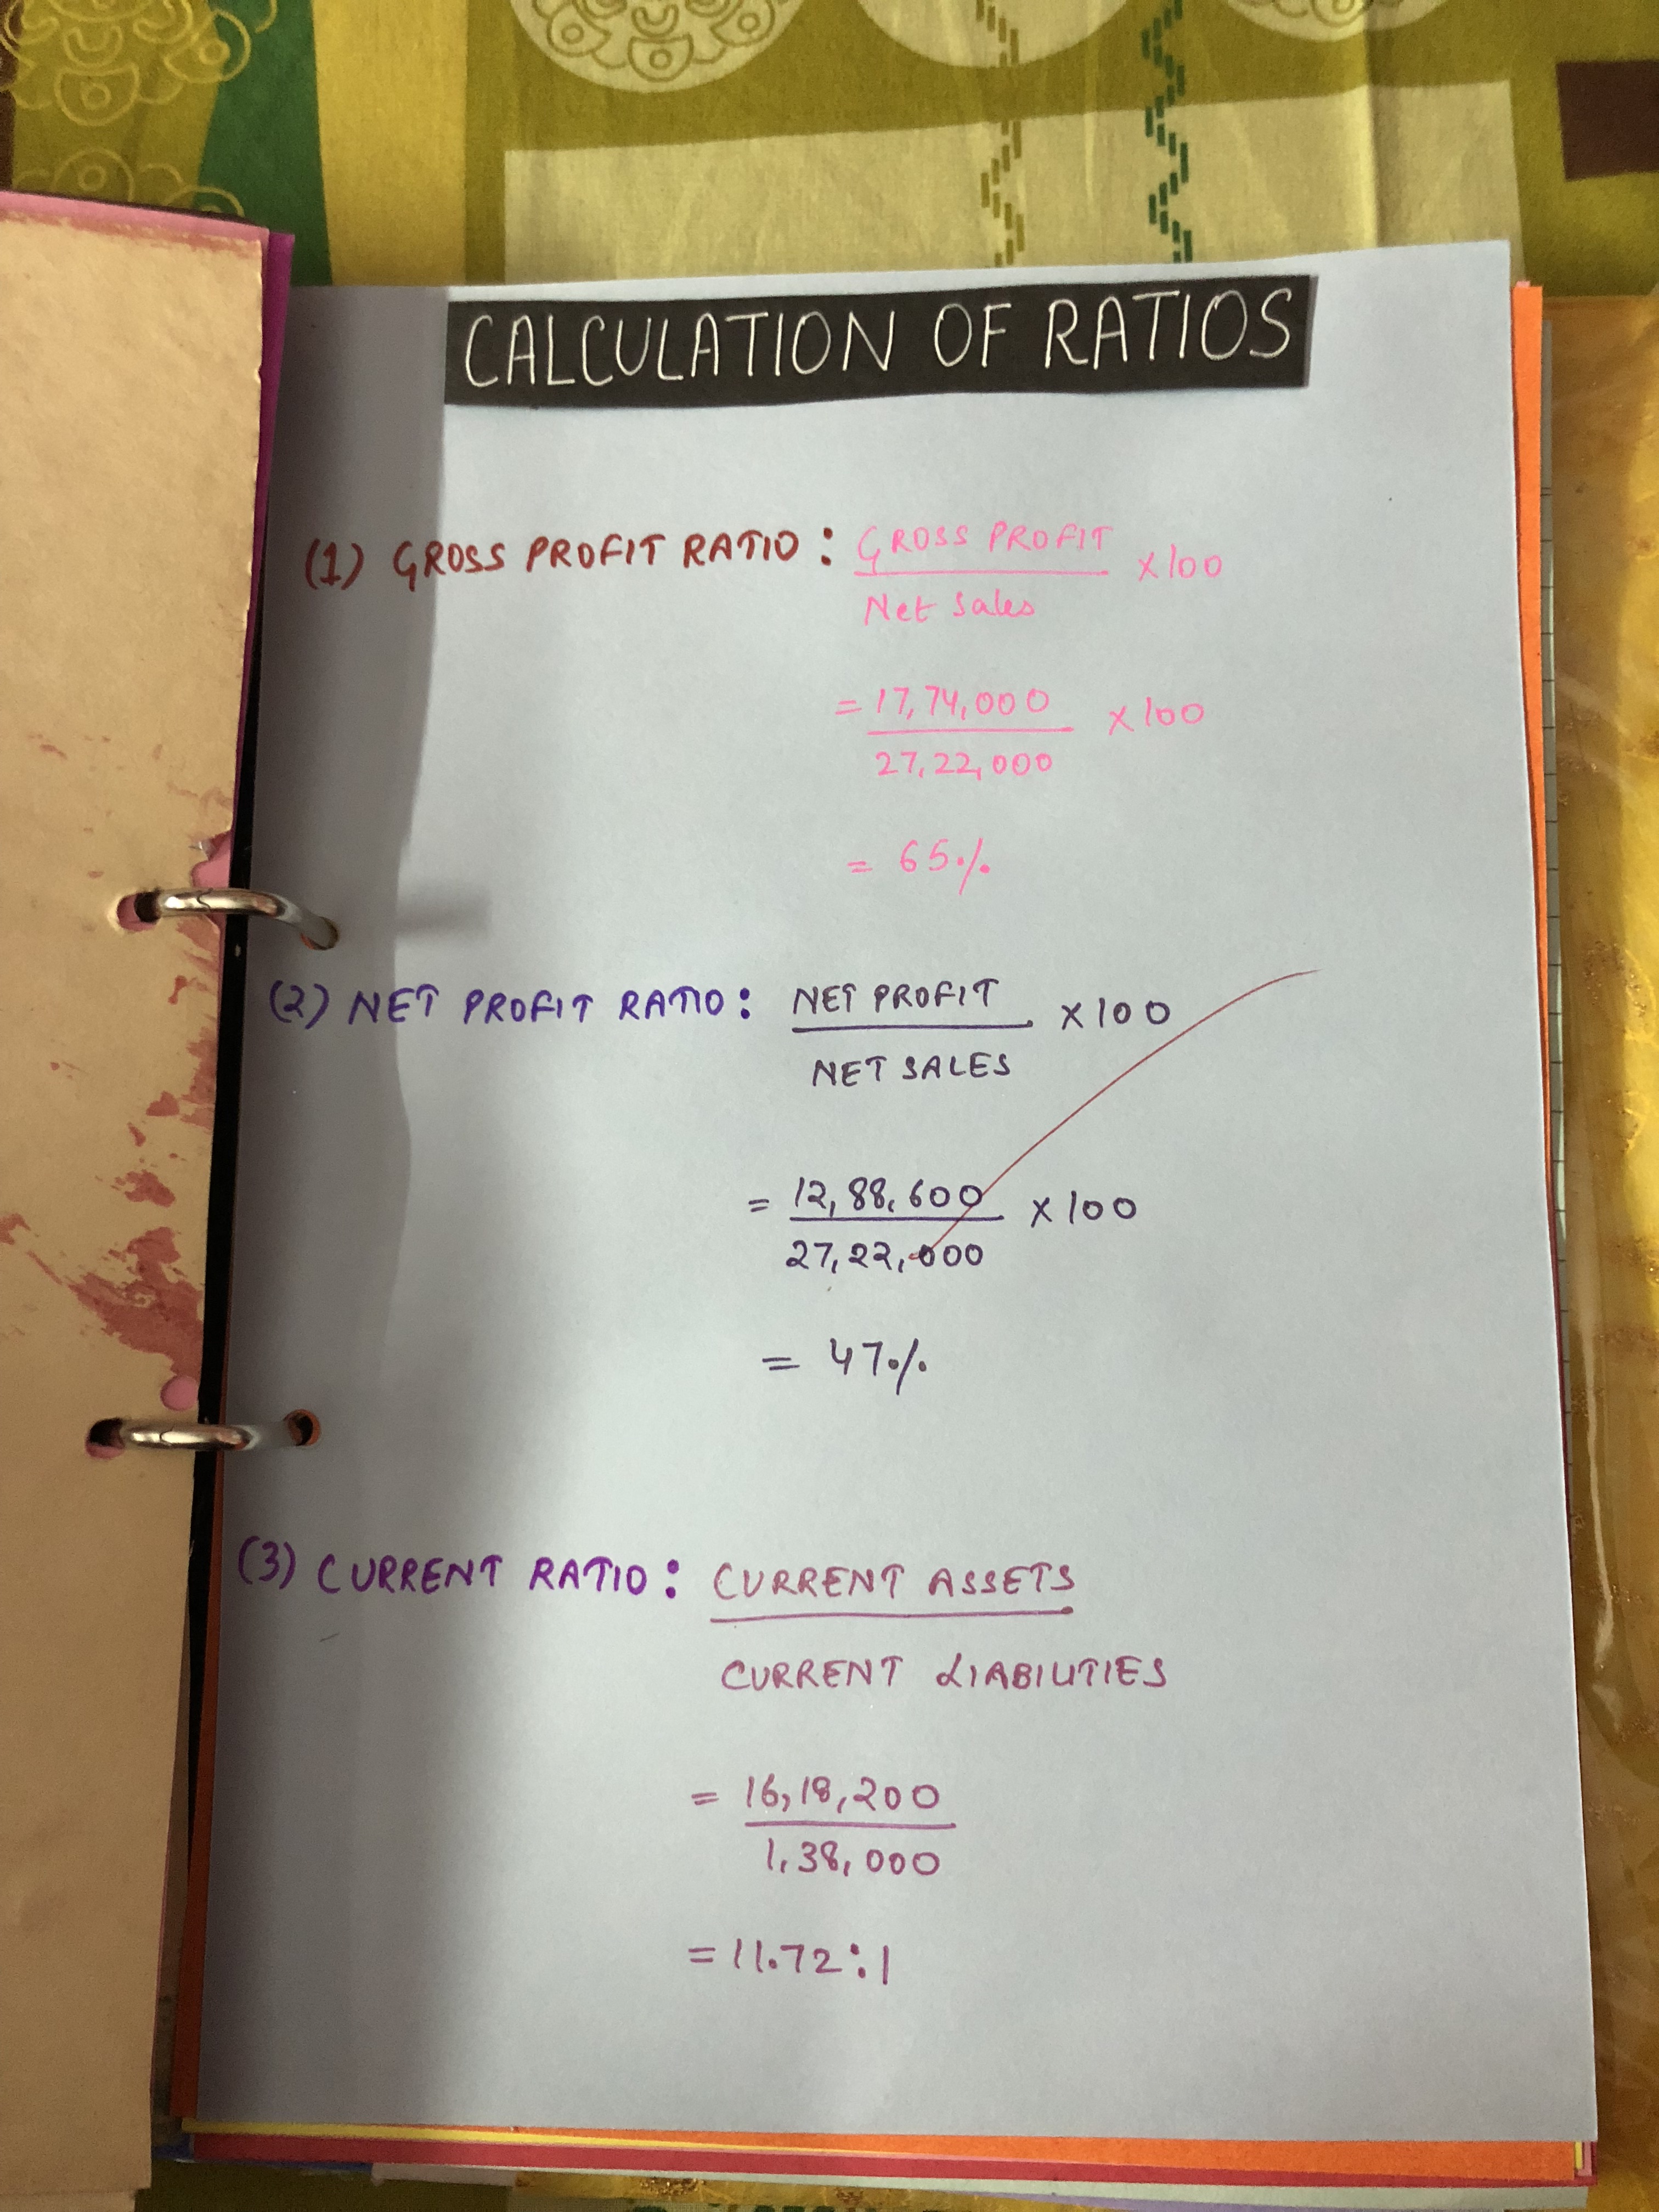 CALCULATION OF RATIOS
(1) GROSS PROFIT RATIO : GROSS PROFIT x100
Net Sales
= 17,74,000 x100
27,22,000
= 65%
(2) NET PROFIT RATIO : NET PROFIT x100
NET SALES
= 12,88,600 x100
27,22,000
= 47%
(3) CURRENT RATIO : CURRENT ASSETS
CURRENT LIABILITIES
= 16,18,200
1,38,000
= 11.72:1